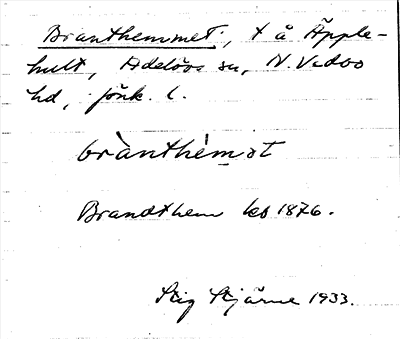 Branthemmet, t å Äpple-
hult, Adelövs sn, N. Vedbo
hd, Jönk. l.
bra`nthèmət
Brandthem ks 1876.
Stig Stjärne 1933.